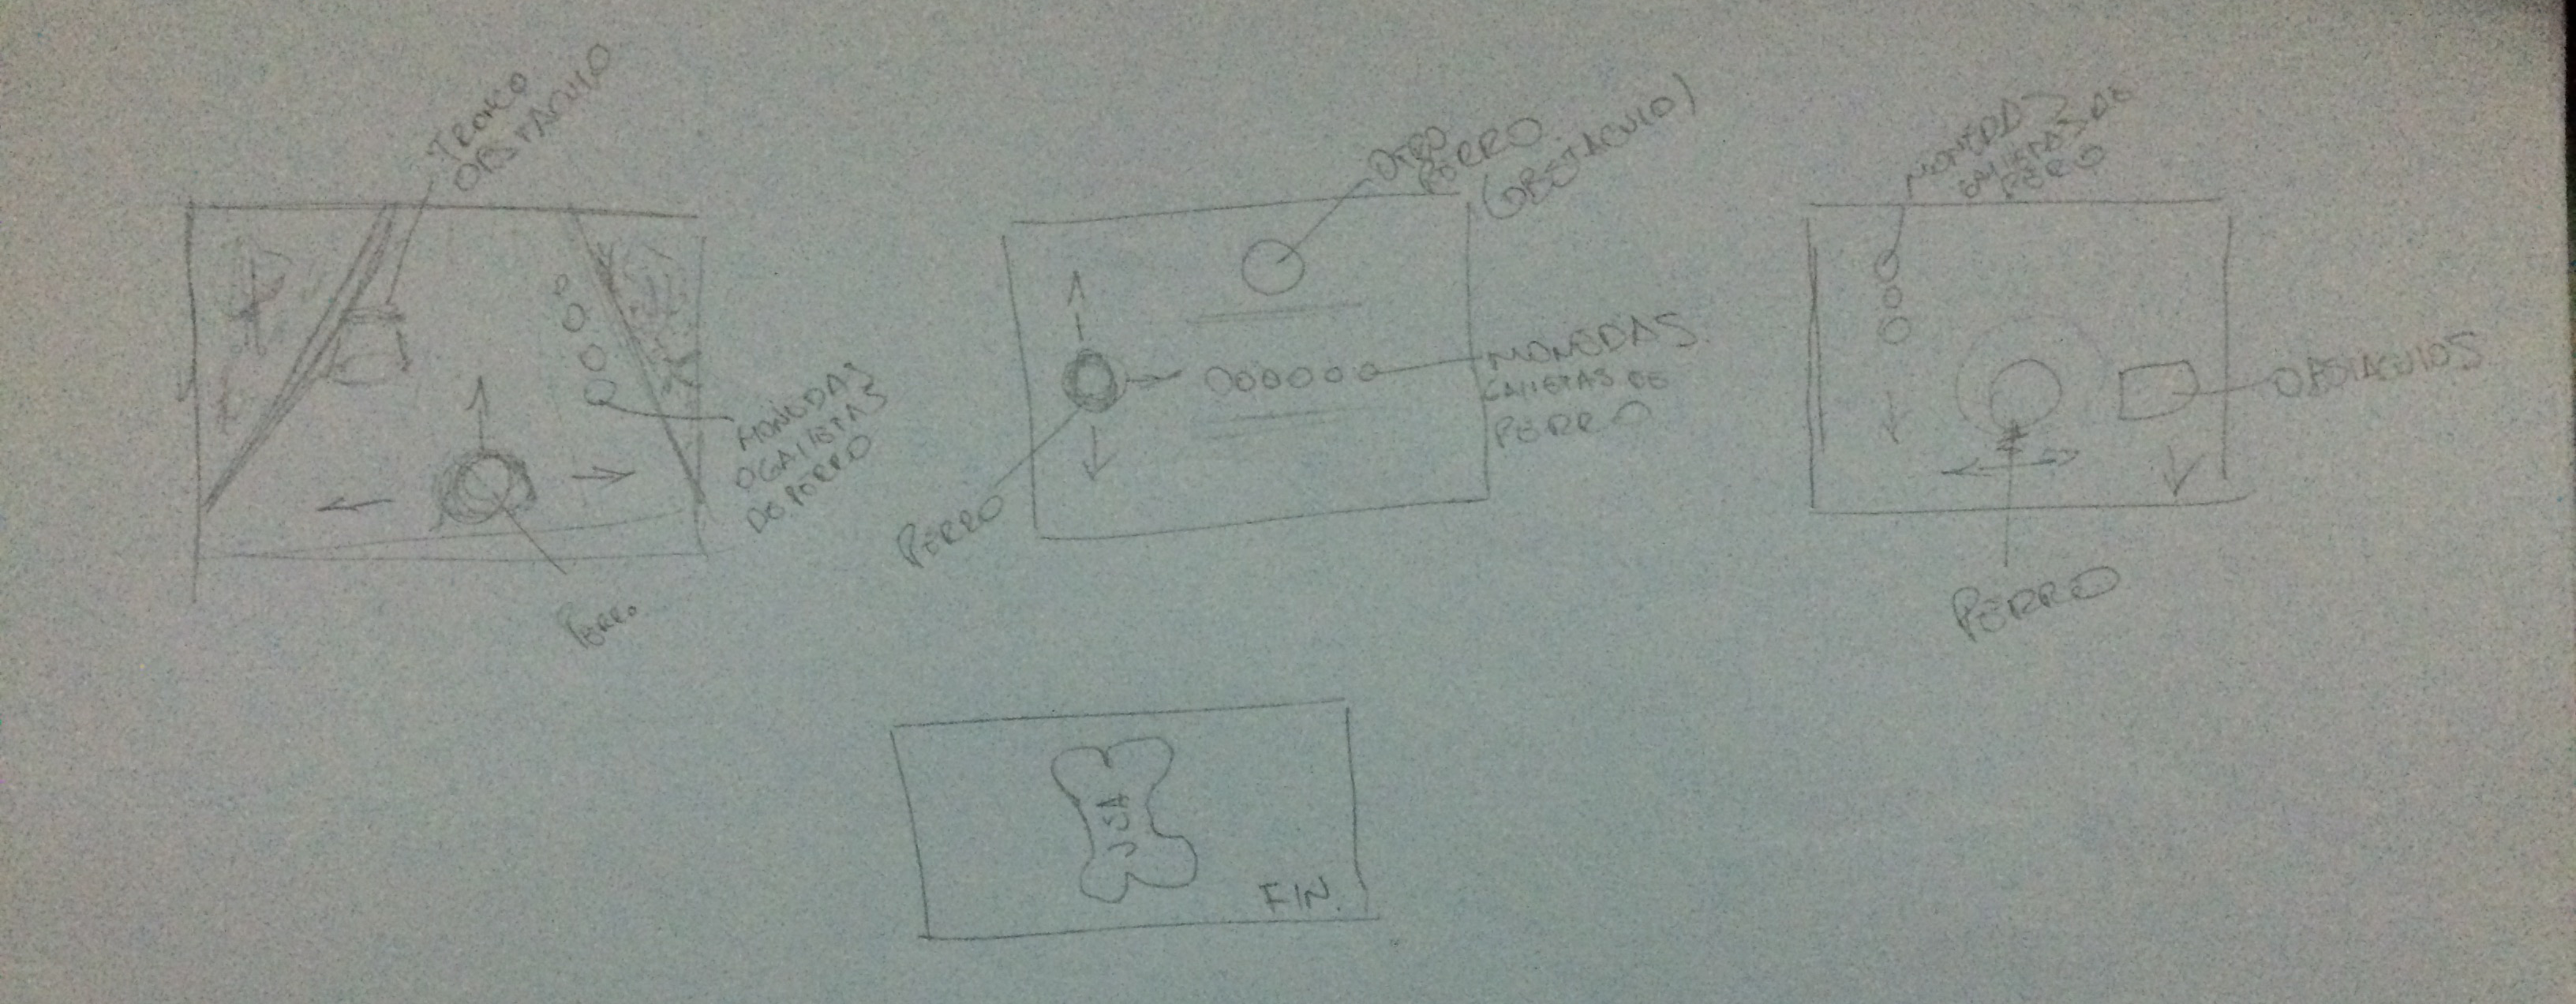 TRONCO
OBSTACULO
MONEDAS
O GALLETAS
DE PERRO
PERRO
OTRO
PERRO
(OBSTACULO)
MONEDAS
GALLETAS DE
PERRO
PERRO
MONEDAS
GALLETAS DE
PERRO
OBSTACULOS
PERRO
FIN.